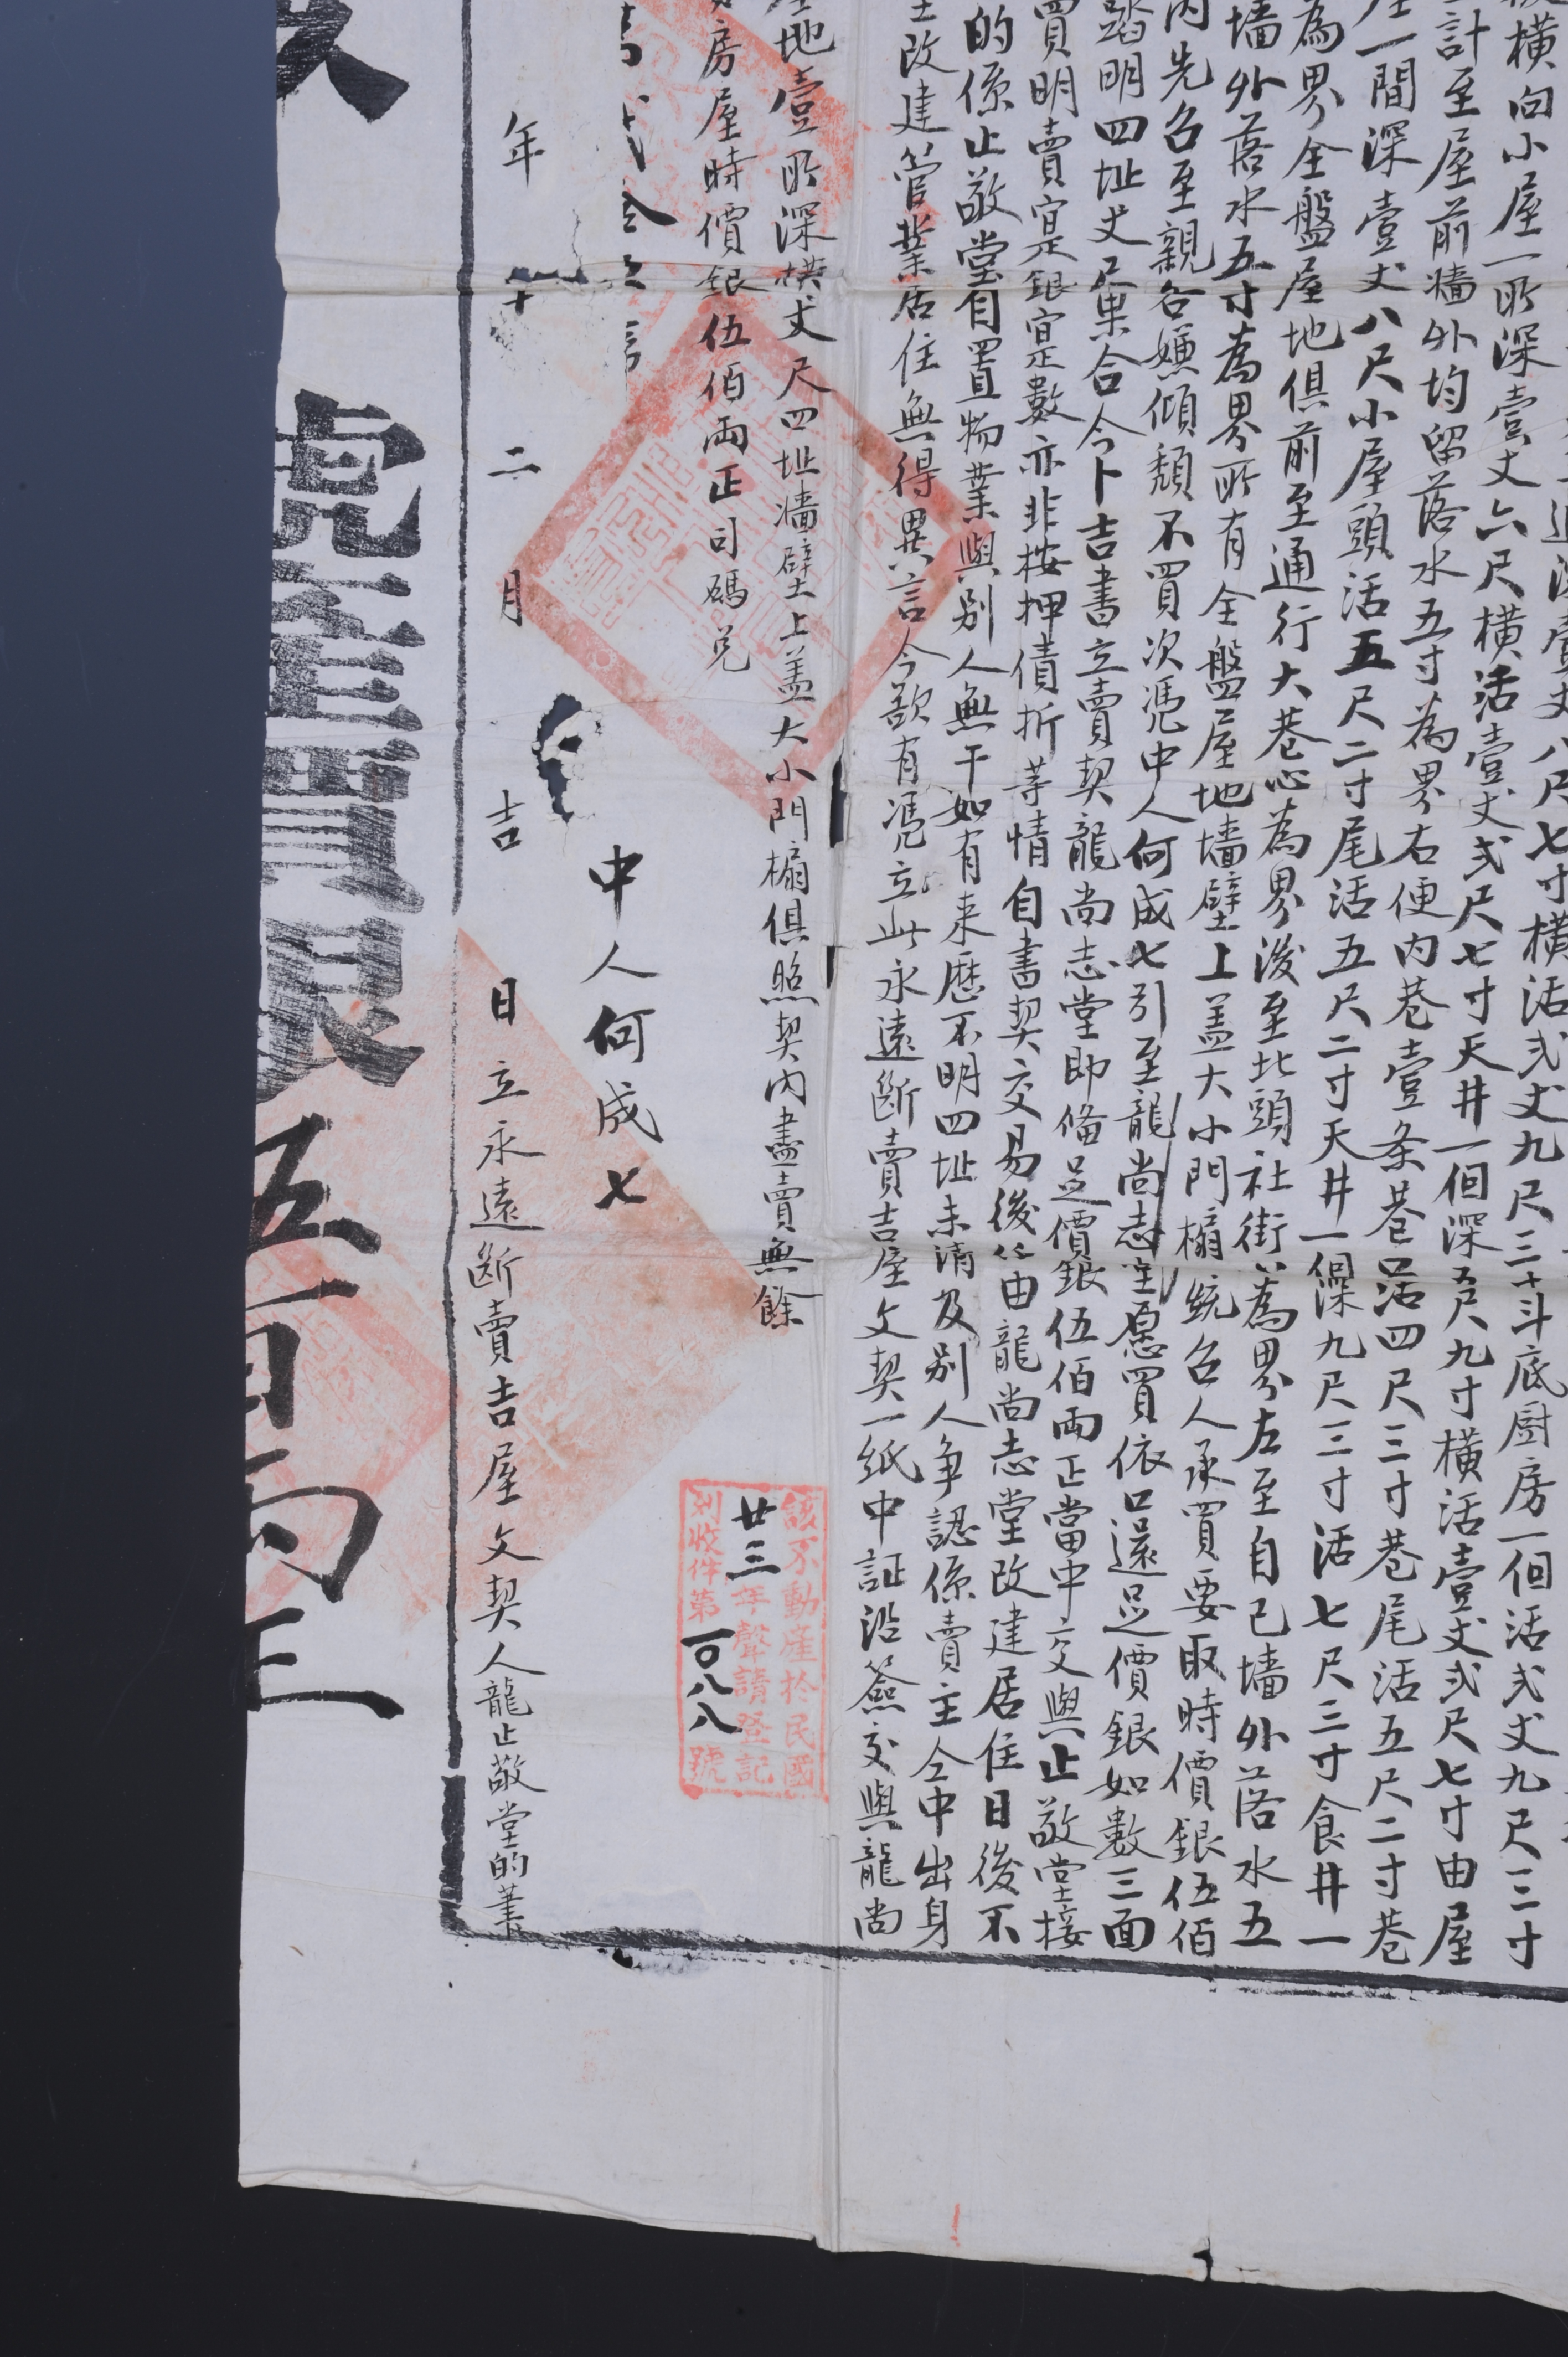 横向小屋一所深壹丈六尺橫活壹丈弍尺七寸天井一個深五尺九寸橫活壹丈弍尺七寸由屋
計至屋前墻外均留落水五寸為界右便內巷壹条巷口活四尺三寸巷尾活五尺二寸巷
一間深壹丈八尺小屋頭活五尺二寸尾活五尺二寸天井一個深九尺三寸活七尺三寸食井一
為界全盤屋地俱前至通行大巷心為界後至北頭社街心為界左至自己墻外落水五
墻外落水五寸為界所有全盤屋地墻壁上盖大小門楄統召人承買要取時價銀伍佰
內先召至親各嫌傾頹不買次憑中人何成七引至龍尚志堂愿買依口還足價銀如數三面
踏明四址丈尺菓合今卜吉書立賣契龍尚志堂即俻足價銀伍佰両正當中交與止敬堂接
買明賣寔銀寔數亦非按押債折等情自書契交易後任由龍尚志堂改建居住日後不
的係止敬堂自置物業與別人無干如有来歷不明四址未清及別人争認係賣主仝中出身
改建管業居住無得異言今欲有憑立此永遠斷賣吉屋文契一紙中証沿簽交與龍尚
地壹所深横丈尺四址墻壁上盖大小門楄俱照契內盡賣無餘
房屋時價銀伍佰両正司碼兑
中人何成七
年十二月吉日立永遠斷賣吉屋文契人龍止敬堂的筆
該不動産於民國
廿三年聲請登記
到收件第一〇八八號
號
買
五百両正